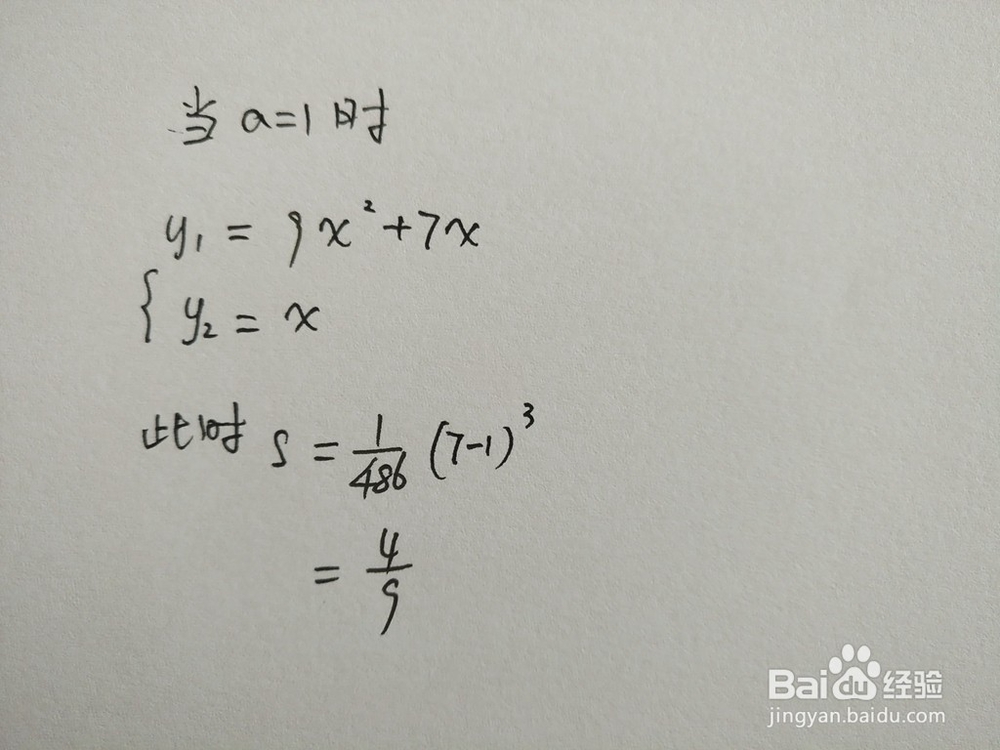 当 a=1 时
y₁ = 9x²+7x
{ y₂ = x
此时 S = 1/486 (7-1)³
= 4/9
Baidu经验
jingyan.baidu.com